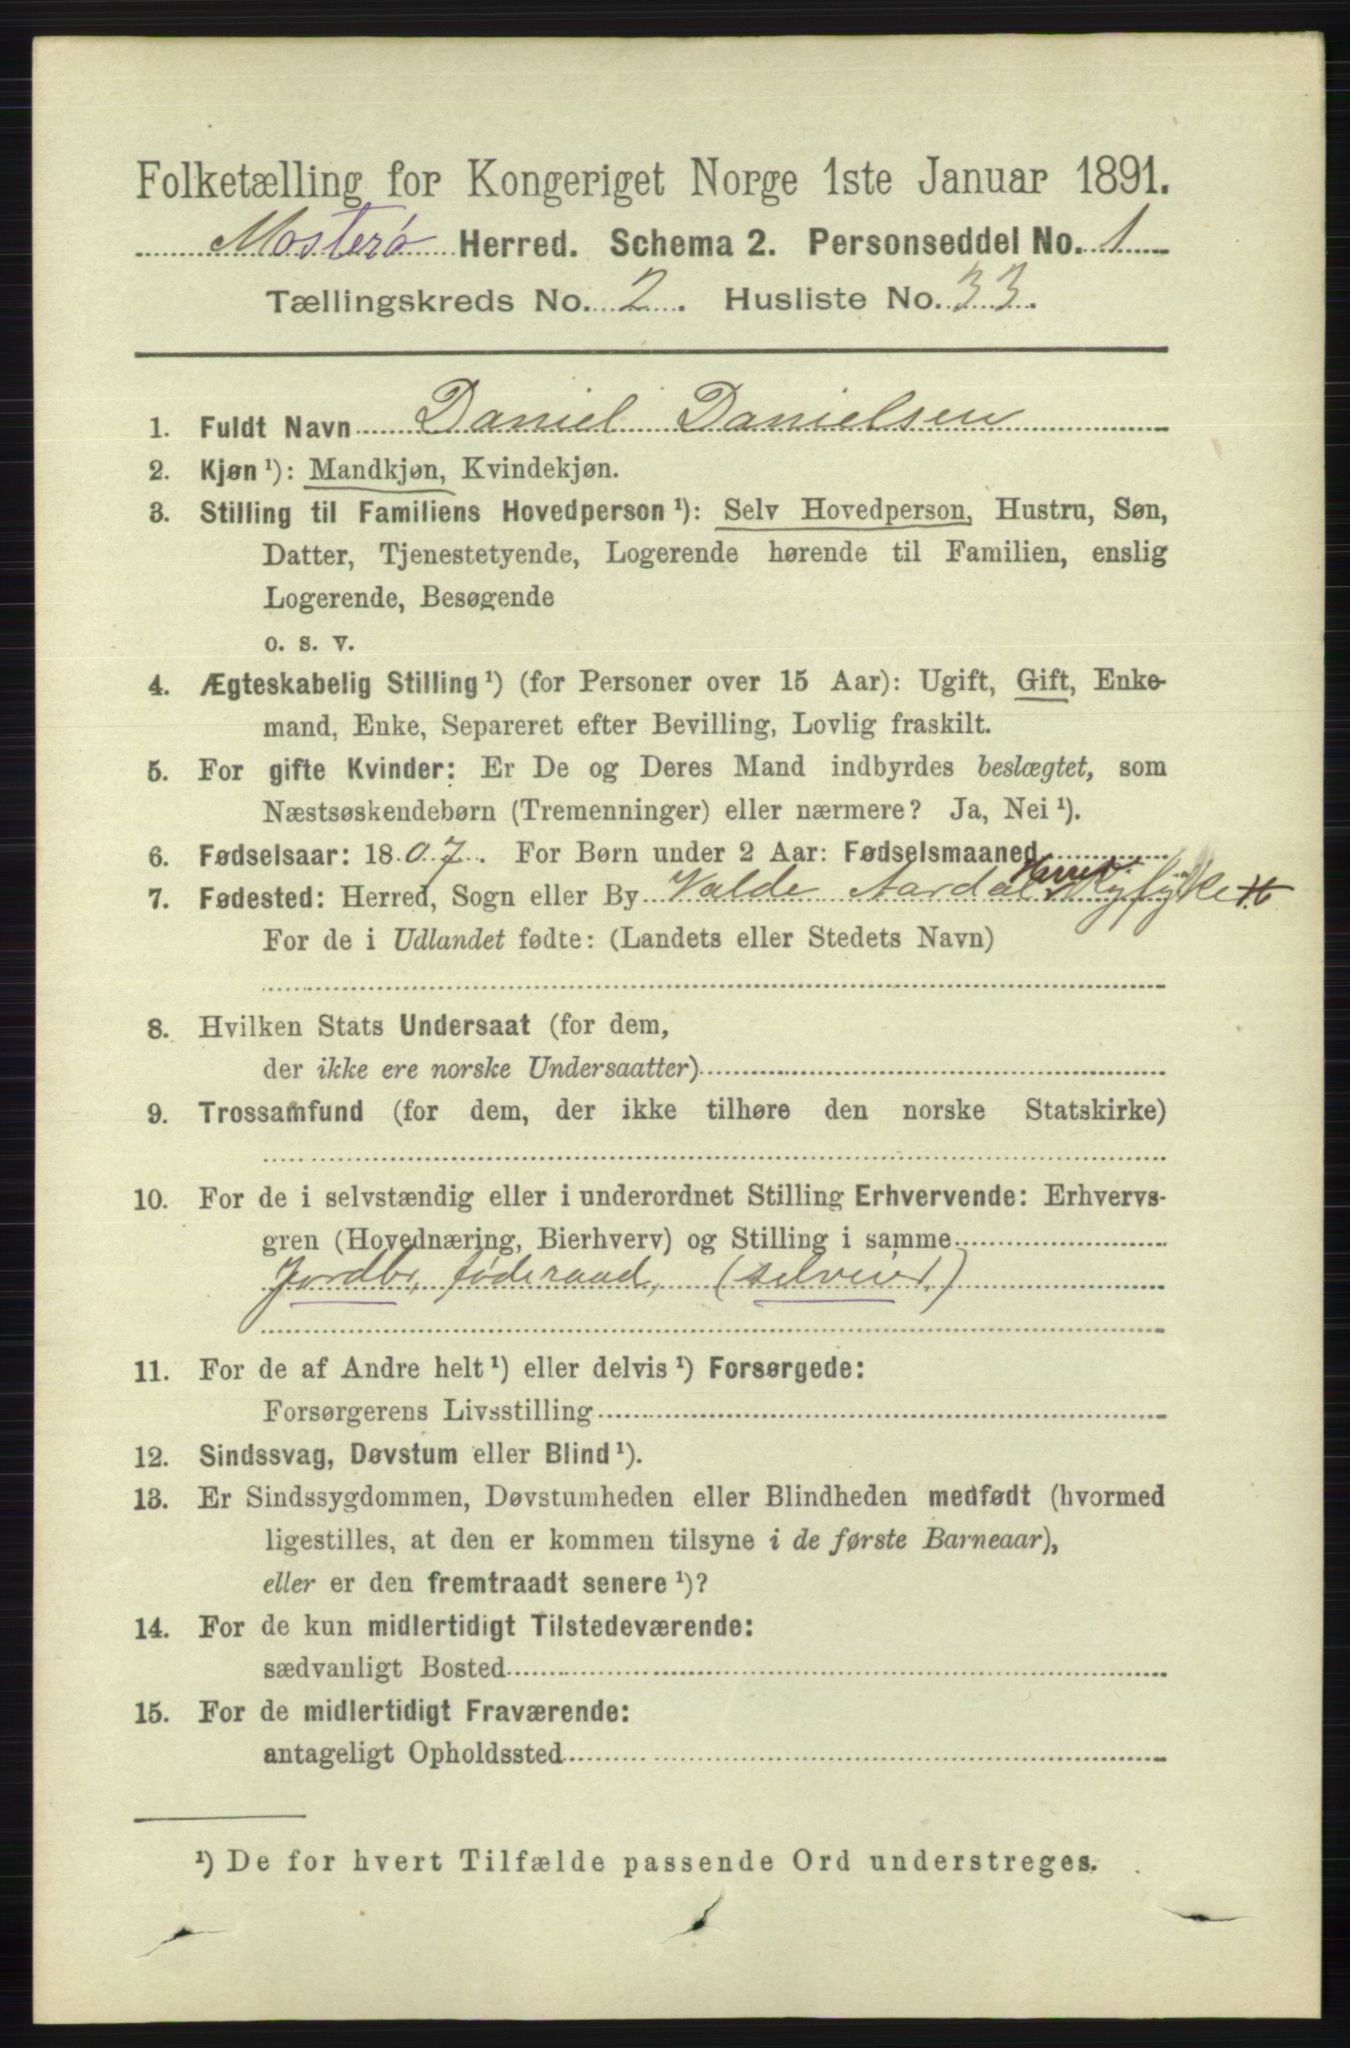 Folketælling for Kongeriget Norge 1ste Januar 1891.
Mosterø Herred. Schema 2. Personseddel No. 1
Tællingskreds No. 2. Husliste No. 33.
1. Fuldt Navn Daniel Danielsen
2. Kjøn ¹): Mandkjøn, Kvindekjøn.
3. Stilling til Familiens Hovedperson ¹): Selv Hovedperson, Hustru, Søn,
Datter, Tjenestetyende, Logerende hørende til Familien, enslig
Logerende, Besøgende
o. s. v.
4. Ægteskabelig Stilling ¹) (for Personer over 15 Aar): Ugift, Gift, Enke-
mand, Enke, Separeret efter Bevilling, Lovlig fraskilt.
5. For gifte Kvinder: Er De og Deres Mand indbyrdes beslægtet, som
Næstsøskendebørn (Tremenninger) eller nærmere? Ja, Nei ¹).
6. Fødselsaar: 1807. For Børn under 2 Aar: Fødselsmaaned
7. Fødested: Herred, Sogn eller By Valde Aardal Ryfylke
For de i Udlandet fødte: (Landets eller Stedets Navn)
8. Hvilken Stats Undersaat (for dem,
der ikke ere norske Undersaatter)
9. Trossamfund (for dem, der ikke tilhøre den norske Statskirke)
10. For de i selvstændig eller i underordnet Stilling Erhvervende: Erhvervs-
gren (Hovednæring, Bierhverv) og Stilling i samme
Jordbr, føderaad, (selveier,)
11. For de af Andre helt ¹) eller delvis ¹) Forsørgede:
Forsørgerens Livsstilling
12. Sindssvag, Døvstum eller Blind ¹).
13. Er Sindssygdommen, Døvstumheden eller Blindheden medfødt (hvormed
ligestilles, at den er kommen tilsyne i de første Barneaar),
eller er den fremtraadt senere ¹)?
14. For de kun midlertidigt Tilstedeværende:
sædvanligt Bosted
15. For de midlertidigt Fraværende:
antageligt Opholdssted
¹) De for hvert Tilfælde passende Ord understreges.